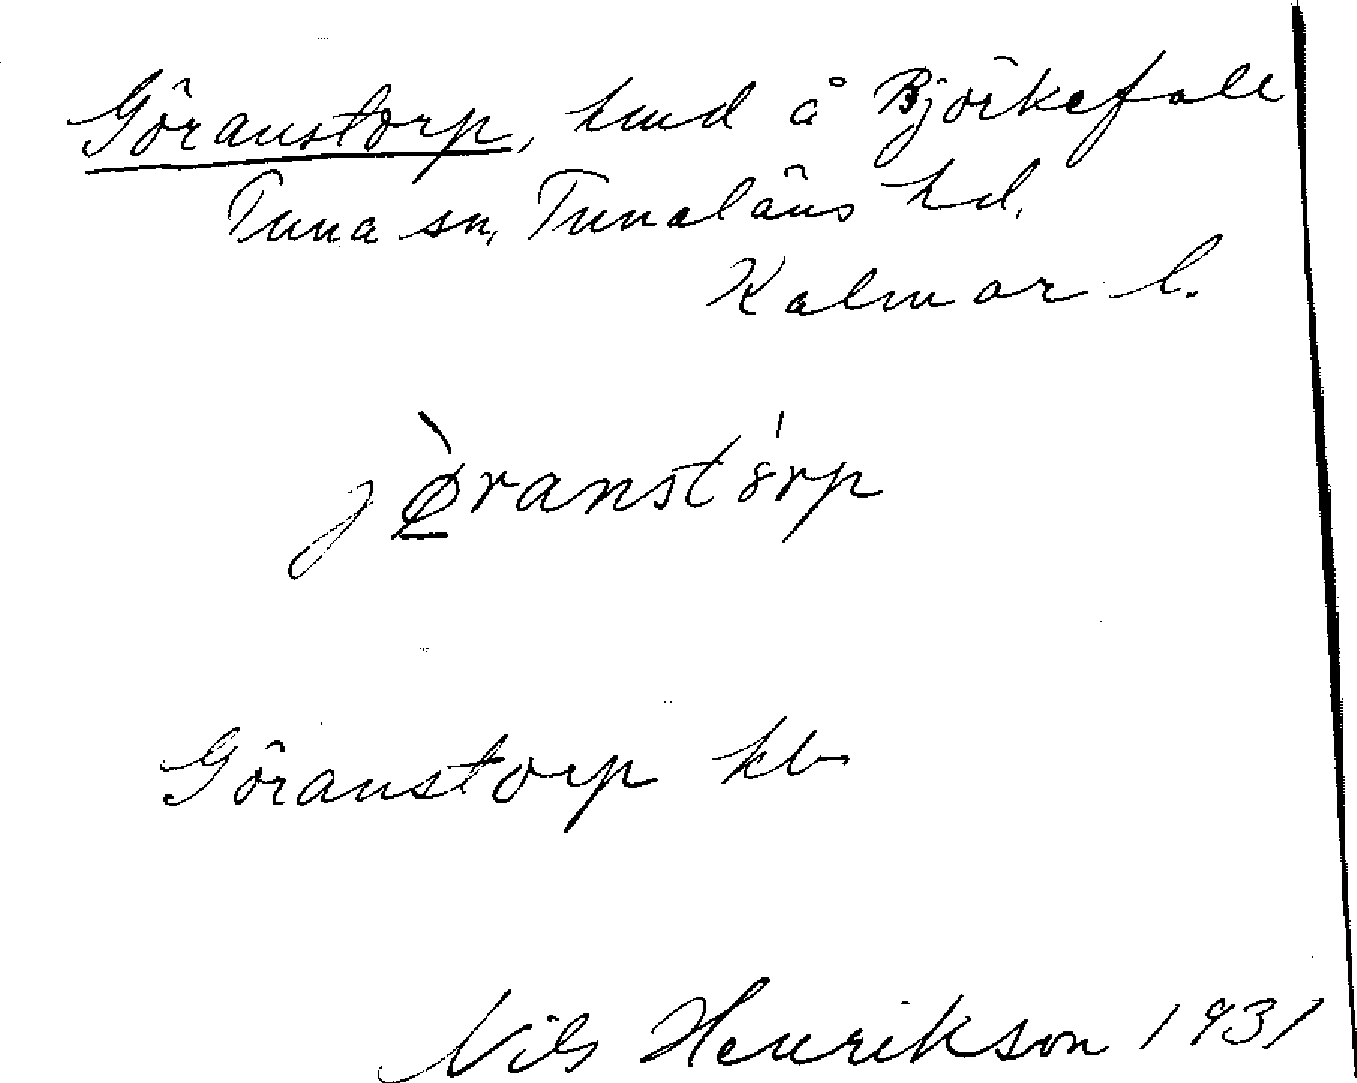 Göranstorp, lmd å Björkefall
Tuna sn, Tunaläns hd.
Kalmar l.
jø̀ranstórp
Göranstorp kb
Nils Henrikson 1931